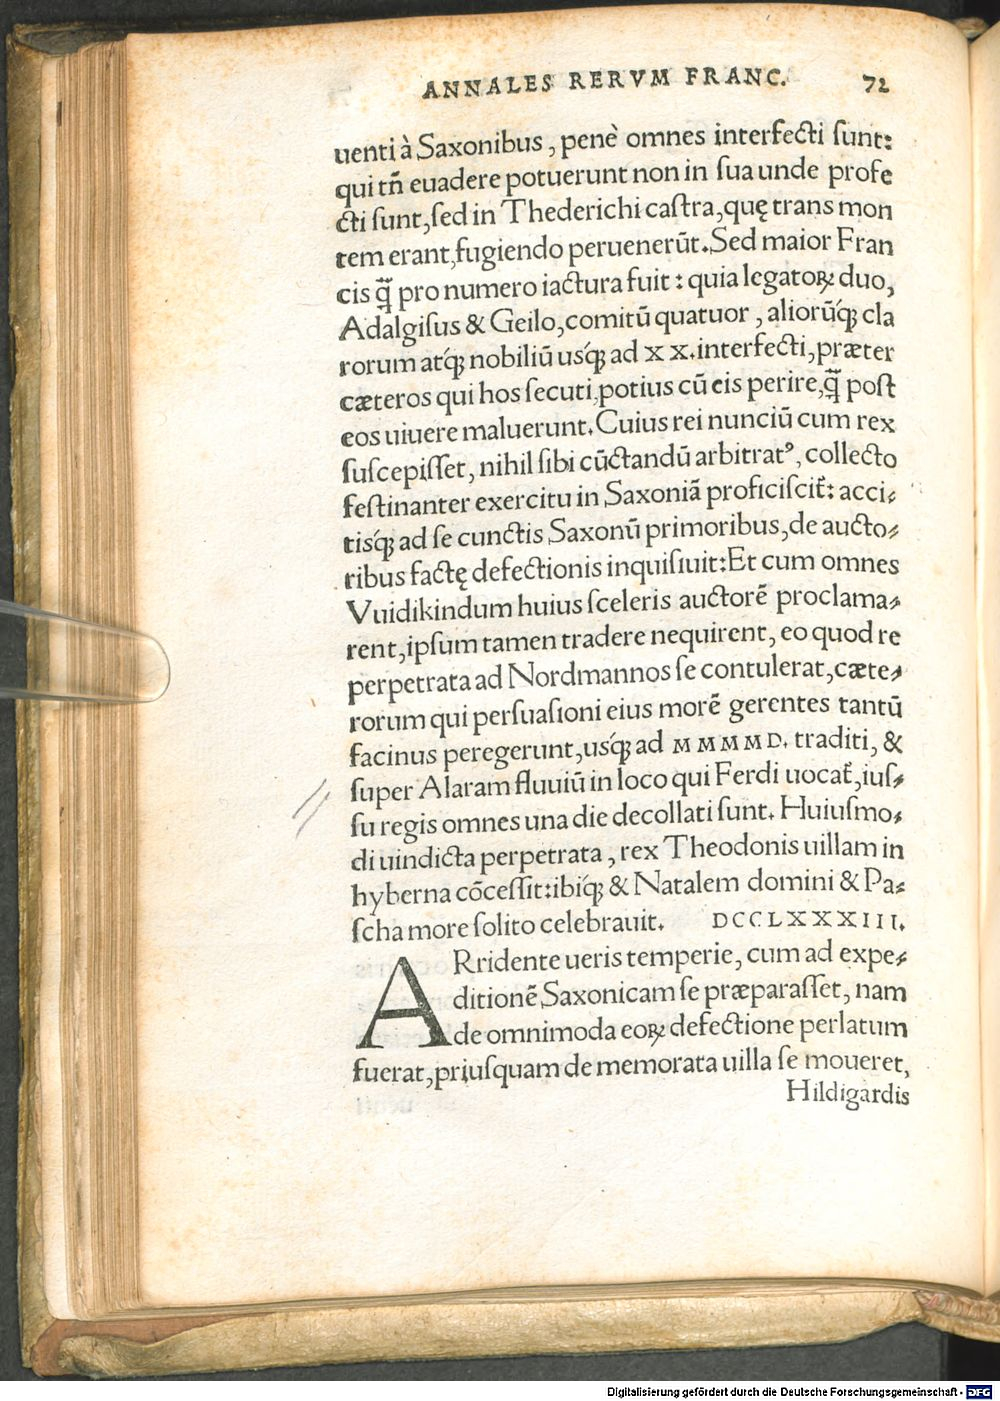 ANNALES RERVM FRANC. 72
uenti à Saxonibus, penè omnes interfecti sunt:
qui tñ euadere potuerunt non in sua unde profe
cti sunt, sed in Thederichi castra, quę trans mon
tem erant, fugiendo peruenerũt. Sed maior Fran
cis q̃ pro numero iactura fuit: quia legatoꝝ duo,
Adalgisus & Geilo, comitũ quatuor, aliorũq́; cla
rorum atq́; nobiliũ usq́; ad XX. interfecti, præter
cæteros qui hos secuti, potius cũ eis perire, q̃ post
eos uiuere maluerunt. Cuius rei nunciũ cum rex
suscepisset, nihil sibi cũctandũ arbitratꝰ, collecto
festinanter exercitu in Saxoniã proficiscit᷑: acci-
tisq́; ad se cunctis Saxonũ primoribus, de aucto-
ribus factę defectionis inquisiuit: Et cum omnes
Vuidikindum huius sceleris auctorẽ proclama-
rent, ipsum tamen tradere nequirent, eo quod re
perpetrata ad Nordmannos se contulerat, cæte-
rorum qui persuasioni eius morẽ gerentes tantũ
facinus peregerunt, usq́; ad MMMMD. traditi, &
super Alaram fluuiũ in loco qui Ferdi uocat᷑, ius-
su regis omnes una die decollati sunt. Huiusmo-
di uindicta perpetrata, rex Theodonis uillam in
hyberna cõcessit: ibiq́; & Natalem domini & Pa-
scha more solito celebrauit. DCCLXXXIII.
ARridente ueris temperie, cum ad expe-
ditionẽ Saxonicam se præparasset, nam
de omnimoda eoꝝ defectione perlatum
fuerat, priusquam de memorata uilla se moueret,
Hildigardis
Digitalisierung gefördert durch die Deutsche Forschungsgemeinschaft - DFG